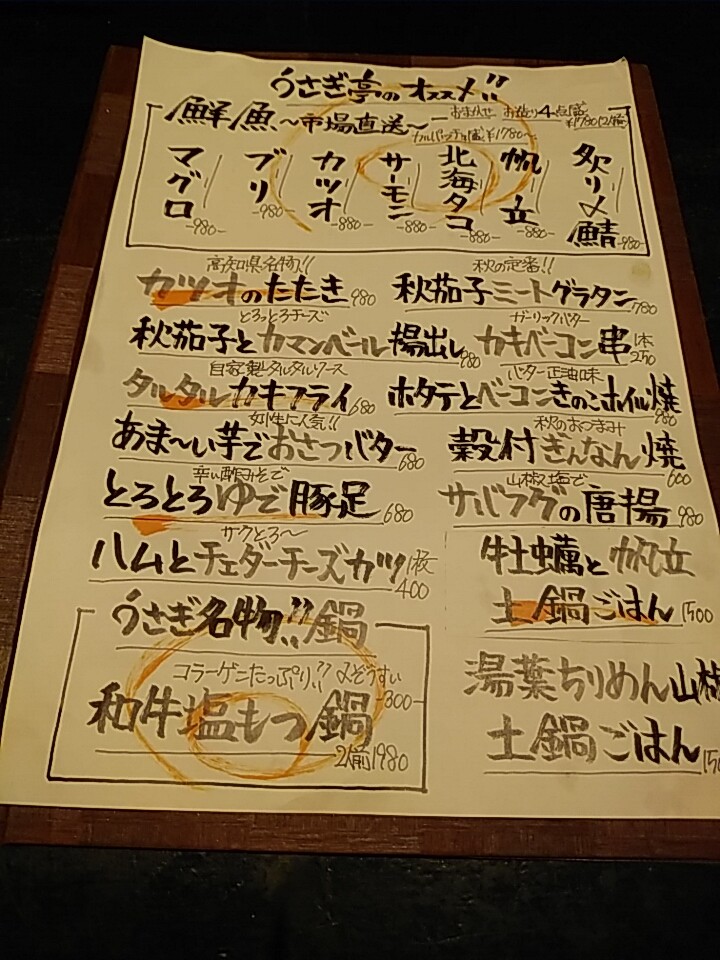 うさぎ亭のオススメ!!
鮮魚〜市場直送〜
おまかせ お造り4点盛 ¥1780(2人前)
カルパッチョ盛¥1780〜
マグロ -980-
ブリ -980-
カツオ -880-
サーモン -880-
北海タコ -880-
帆立 -880-
炙り〆鯖 -980-
高知県名物!!
カツオのたたき 980
とろっとろチーズ
秋茄子とカマンベール揚出し 980
自家製タルタルソース
タルタルカキフライ 680
女性に人気!!
あま〜い芋でおさつバター 680
辛い酢みそで
とろとろゆで豚足 680
サクとろ〜
ハムとチェダーチーズカツ 1枚 400
うさぎ名物!!鍋
コラーゲンたっぷり!! 〆ぞうすい -300-
和牛塩もつ鍋
2人前1980
秋の定番!!
秋茄子ミートグラタン 780
ガーリックバター
カキベーコン串 1本 250
バター正油味
ホタテとベーコンきのこホイル焼 980
秋のおつまみ
殻付ぎんなん焼 600
山椒塩で
サバフグの唐揚 980
牡蠣と帆立
土鍋ごはん 1500
湯葉ちりめん山椒
土鍋ごはん 150